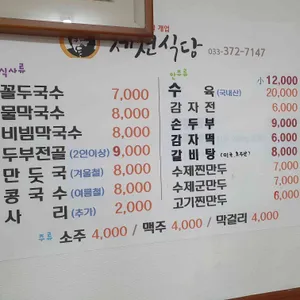 개업
제천식당 033-372-7147
식사류
꼴두국수 7,000
물막국수 8,000
비빔막국수 8,000
두부전골 (2인이상) 9,000
만둣국 (겨울철) 8,000
콩국수 (여름철) 8,000
사리 (추가) 2,000
안주류
小 12,000
수육 (국내산) 20,000
감자전 6,000
손두부 9,000
감자떡 6,000
갈비탕 8,000
수제찐만두 7,000
수제군만두 7,000
고기찐만두 6,000
주류 소주 4,000 / 맥주 4,000 / 막걸리 4,000